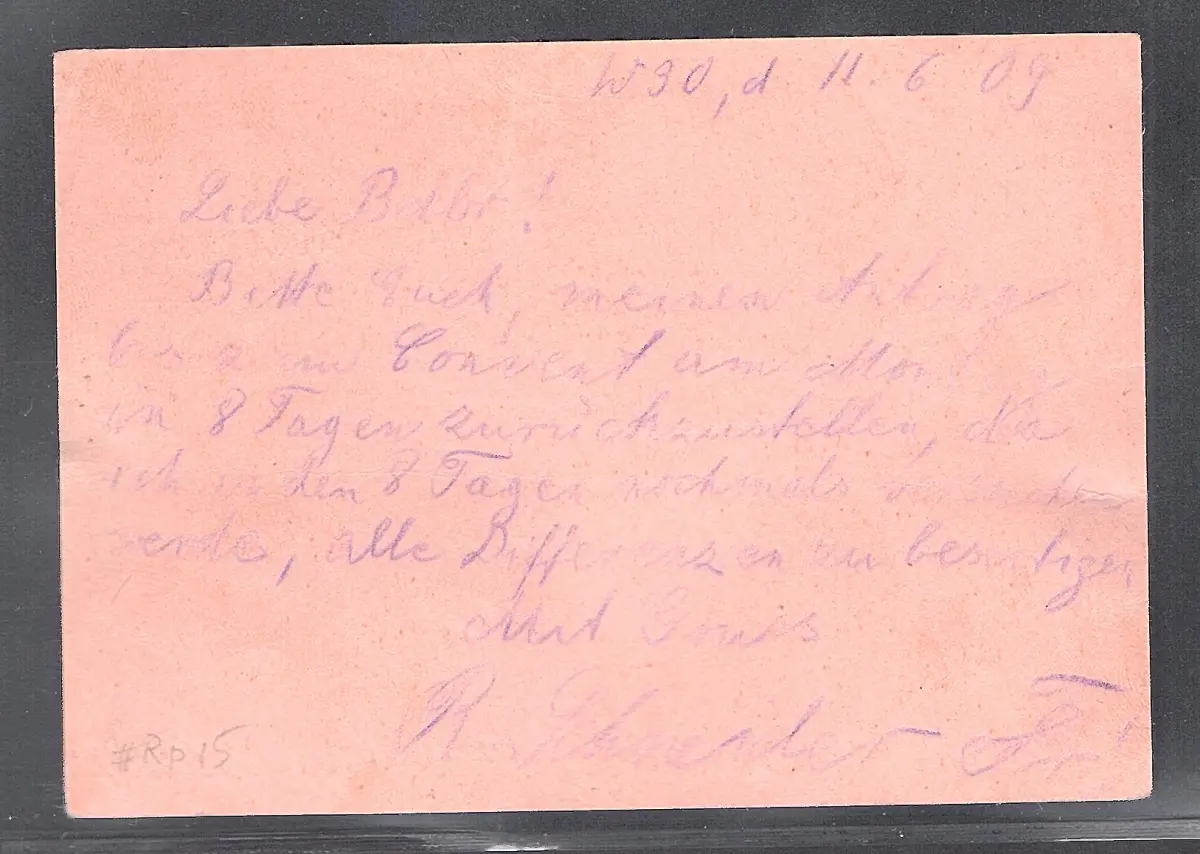 W30, d 11. 6 09
Liebe Bdbr!
Bitte Euch, meinen Antrag
bis zum Convent am Montag
in 8 Tagen zurückzustellen, da
ich in den 8 Tagen nochmals versuchen
werde, alle Differenzen zu beseitigen
Mit Gruß
R.
#Rp15